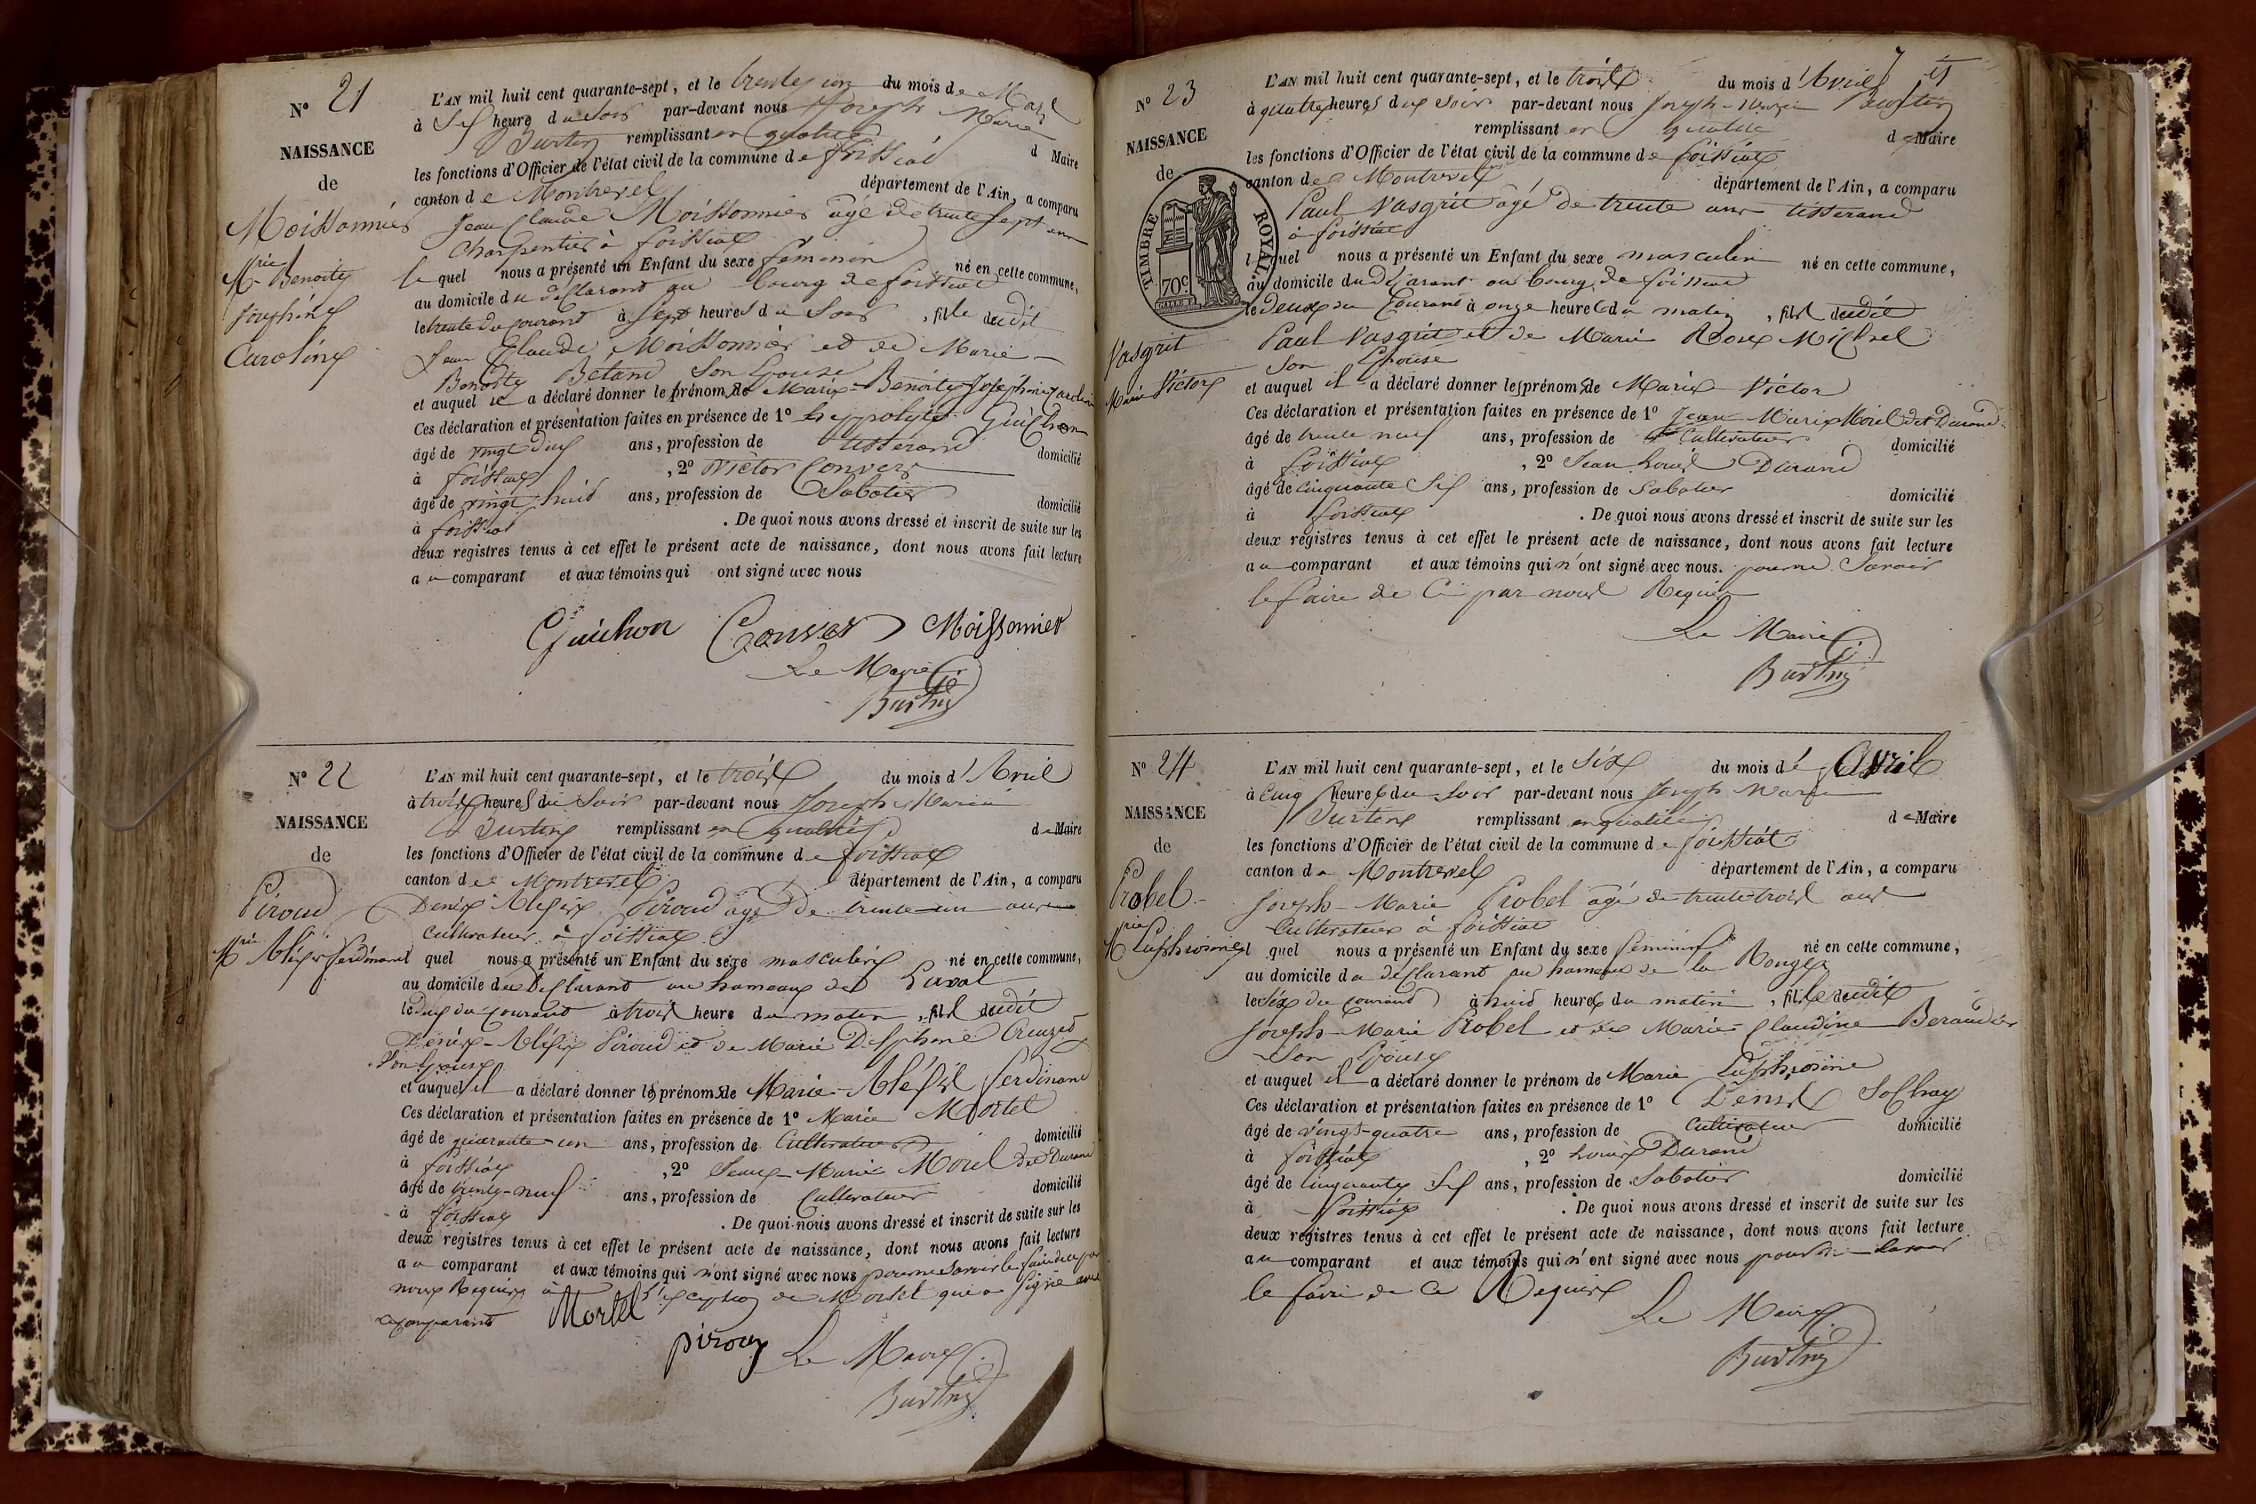 N° 21
NAISSANCE
de
Moissonnier
Mrie Benoite
Joséphine
Caroline
L'AN mil huit cent quarante-sept, et le trente un du mois de Mars
à Six heure du Soir par-devant nous Joseph Marie
Burtin remplissant en qualité de Maire
les fonctions d'Officier de l'état civil de la commune de foissiat
canton de Montrevel département de l'Ain, a comparu
Jean Claude Moissonnier âgé de trente sept ans
Charpentier à foissiat
le quel nous a présenté un Enfant du sexe féminin né en cette commune,
au domicile du déclarant au bourg de foissiat
le trente du courant à Sept heures du Soir, fille dudit
Jean Claude Moissonnier et de Marie
Benoite Betand Son Epouse
et auquel il a déclaré donner les prénoms de Marie-Benoite Joséphine Caroline
Ces déclaration et présentation faites en présence de 1° hyppolyte Guichon
âgé de vingt deux ans, profession de tisserand domicilié
à foissiat, 2° Victor Convers
âgé de vingt huit ans, profession de Sabotier domicilié
à foissiat. De quoi nous avons dressé et inscrit de suite sur les
deux registres tenus à cet effet le présent acte de naissance, dont nous avons fait lecture
au comparant et aux témoins qui ont signé avec nous
Guichon Convers Moissonnier
Le Maire
Burtin
N° 22
NAISSANCE
de
Piroud
Mrie Aléxis ferdinand
L'AN mil huit cent quarante-sept, et le trois du mois d'Avril
à trois heures du Soir par-devant nous Joseph Marie
Burtin remplissant en qualité de Maire
les fonctions d'Officier de l'état civil de la commune de foissiat
canton de Montrevel département de l'Ain, a comparu
Denis Alexis Piroud âgé de trente-un ans
Cultivateur à foissiat
l quel nous a présenté un Enfant du sexe masculin né en cette commune,
au domicile du déclarant au hameau de Laval
le deux du courant à trois heure du matin, fils dudit
Denis-Aléxis Piroud et de Marie Delphine Creuzet
Son Epouse
et auquel il a déclaré donner les prénoms de Marie-Aléxis ferdinand
Ces déclaration et présentation faites en présence de 1° Marie Mortel
âgé de quarante-un ans, profession de Cultivateur domicilié
à foissiat, 2° Jean-Marie Morel dit Durand
âgé de trente-neuf ans, profession de Cultivateur domicilié
à foissiat. De quoi nous avons dressé et inscrit de suite sur les
deux registres tenus à cet effet le présent acte de naissance, dont nous avons fait lecture
au comparant et aux témoins qui n'ont signé avec nous pour ne Savoir le faire de ce par
nous Requis à l'exception de Mortel qui a Signé avec
le comparant
Mortel
piroud
Le Maire
Burtin
7
N° 23
NAISSANCE
de
TIMBRE ROYAL
70c
Vasgrit
Marie Victor
L'AN mil huit cent quarante-sept, et le trois du mois d'Avril
à quatre heures du Soir par-devant nous Joseph-Marie Burtin
remplissant en qualité de Maire
les fonctions d'Officier de l'état civil de la commune de foissiat
canton de Montrevel département de l'Ain, a comparu
Paul Vasgrit âgé de trente ans tisserand
à foissiat
l quel nous a présenté un Enfant du sexe masculin né en cette commune,
au domicile du déclarant au bourg de foissiat
le deux du Courant à onze heures du matin, fils dudit
Paul Vasgrit et de Marie Rose Michel
Son Epouse
et auquel il a déclaré donner les prénoms de Marie Victor
Ces déclaration et présentation faites en présence de 1° Jean-Marie Morel dit Durand
âgé de trente neuf ans, profession de Cultivateur domicilié
à foissiat, 2° Jean Louis Durand
âgé de cinquante Six ans, profession de Sabotier domicilié
à foissiat. De quoi nous avons dressé et inscrit de suite sur les
deux registres tenus à cet effet le présent acte de naissance, dont nous avons fait lecture
au comparant et aux témoins qui n'ont signé avec nous. pour ne Savoir
le faire de Ce par nous Requis
Le Maire
Burtin
N° 24
NAISSANCE
de
Probel
Mrie Euphrosine
L'AN mil huit cent quarante-sept, et le Six du mois d' Avril
à Cinq heures du Soir par-devant nous Joseph Marie
Burtin remplissant en qualité de Maire
les fonctions d'Officier de l'état civil de la commune de foissiat
canton de Montrevel département de l'Ain, a comparu
Joseph-Marie Probel âgé de trente-trois ans
Cultivateur à foissiat
l quel nous a présenté un Enfant du sexe féminin né en cette commune,
au domicile du déclarant au hameau de la
le Six du courant à huit heures du matin, fille dudit
Joseph-Marie Probel et de Marie-Claudine Beraudier
Son Epouse
et auquel il a déclaré donner le prénom de Marie Euphrosine
Ces déclaration et présentation faites en présence de 1° Denis Sochay
âgé de vingt-quatre ans, profession de Cultivateur domicilié
à foissiat, 2° Louis Durand
âgé de Cinquante Six ans, profession de Sabotier domicilié
à foissiat. De quoi nous avons dressé et inscrit de suite sur les
deux registres tenus à cet effet le présent acte de naissance, dont nous avons fait lecture
au comparant et aux témoins qui n'ont signé avec nous pour ne Savoir
le faire de Ce Requis
Le Maire
Burtin